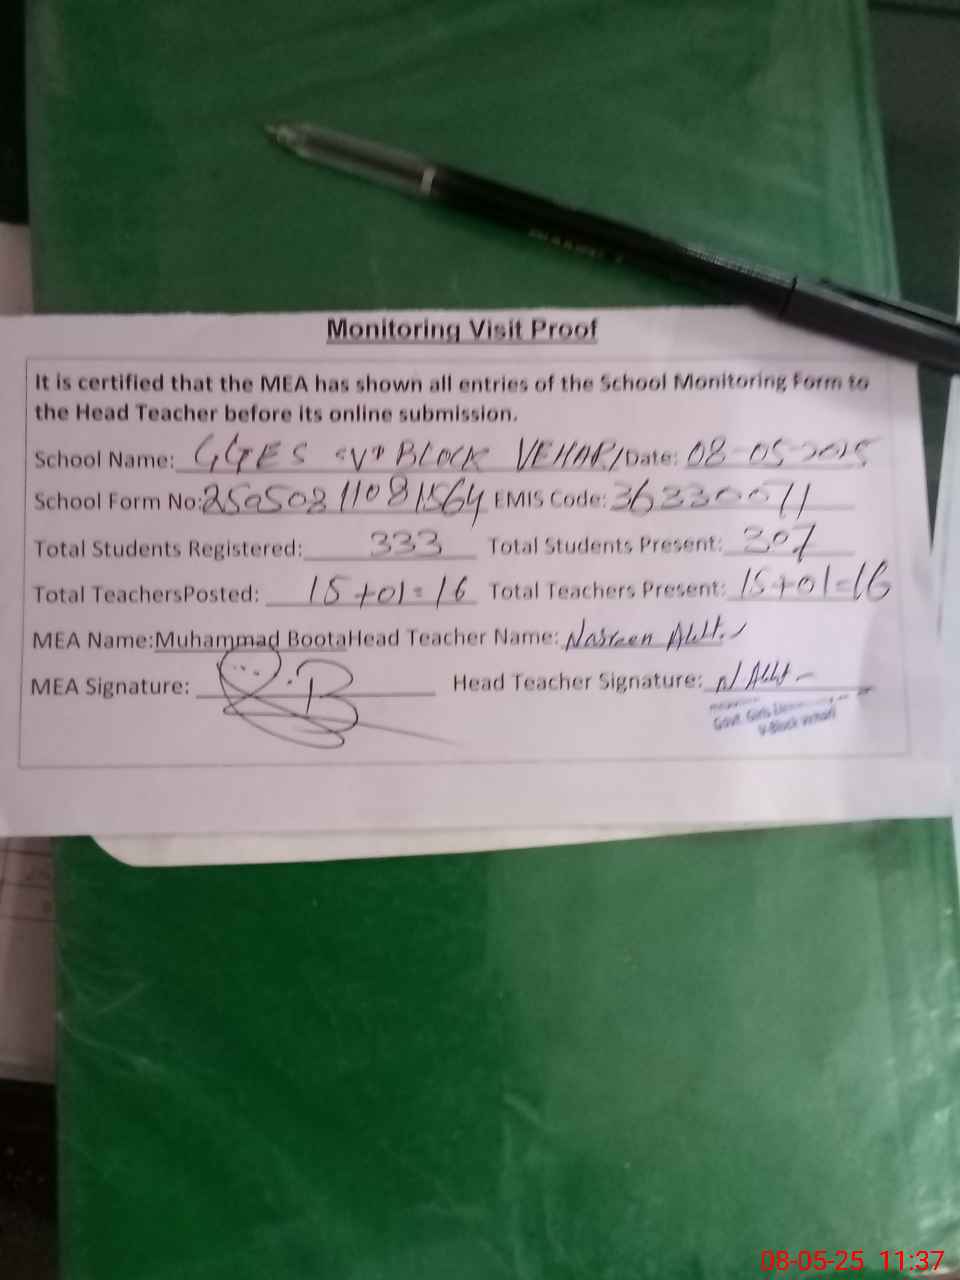 Monitoring Visit Proof
It is certified that the MEA has shown all entries of the School Monitoring Form to
the Head Teacher before its online submission.
School Name: GGES "V" BLOCK VEHARI Date: 08-05-2025
School Form No: 25050811081564 EMIS Code: 36330071
Total Students Registered: 333 Total Students Present: 307
Total TeachersPosted: 15+01=16 Total Teachers Present: 15+01=16
MEA Name:Muhammad BootaHead Teacher Name: Nasreen Akhtar
MEA Signature: Head Teacher Signature: N Akht
Govt. Girls
V-Block Vehari
08-05-25 11:37